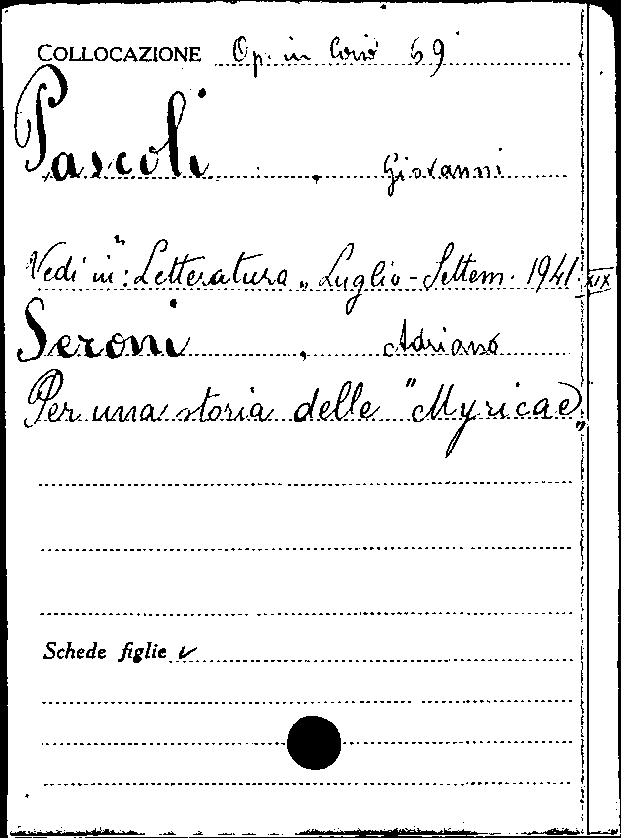 COLLOCAZIONE Op. in Corso 69
Pascoli, Giovanni
Vedi in: "Letteratura" Luglio-Settem. 1941. XIX
Seroni, Adriano
Per una storia delle "Myricae"
Schede figlie ✓